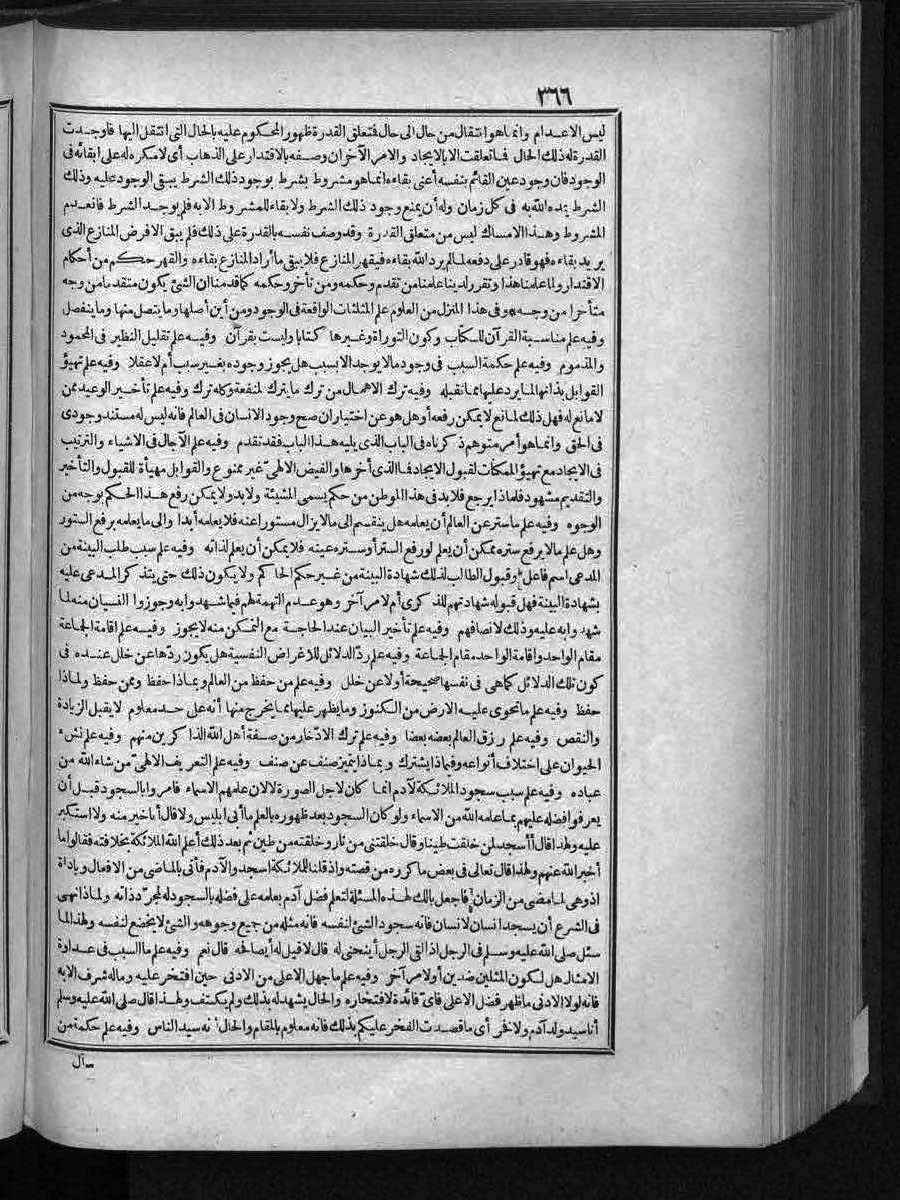 ٣٦٦
ليس الاعدام وانما هو انتقال من حال الى حال فتعلق القدرة ظهور المحكوم عليه بالحال التى انتقل اليها فاوجدت
القدرة له ذلك الحال فما تعلقت الا بالايجاد والامر الآخر ان وصفه بالاقتدار على الذهاب أى لا مكره له على ابقائه فى
الوجود فان وجود عين القائم بنفسه أعنى بقاءه انما هو مشروط بشرط بوجود ذلك الشرط يبقى الوجود عليه وذلك
الشرط يمده الله به فى كل زمان وله أن يمنع وجود ذلك الشرط ولا بقاء للمشروط الا به فلم يوجد الشرط فانعدم
المشروط وهذا الامساك ليس من متعلق القدرة وقد وصف نفسه بالقدرة على ذلك فلم يبق الا فرض المنازع الذى
يريد بقاءه فهو قادر على دفعه لما لم يرد الله بقاءه فيقهر المنازع فلا يبقى ما أراد المنازع بقاءه والقهر حكم من أحكام
الاقتدار ولما علمنا هذا وتقرر لدينا علمنا من تقدم وحكمه ومن تأخر وحكمه كما قدمنا ان الشئ يكون متقدما من وجه
متأخرا من وجه وفى هذا المنزل من العلوم علم المثلثات الواقعة فى الوجود ومن أين أصلها وما يتصل منها وما ينفصل
وفيه علم مناسبة القرآن للكتاب وكون التوراة وغيرها كتابا وليست بقرآن وفيه علم تقليل النظير فى المحمود
والمذموم وفيه علم حكمة السبب فى وجود ما لا يوجد الا بسبب هل يجوز وجوده بغير سبب أم لا عقلا وفيه علم تهيؤ
القوابل بذاتها لما يرد عليها مما تقبله وفيه ترك الاهمال من ترك ما يترك لمنفعة وكله ترك وفيه علم تأخير الوعيد ممن
لا مانع له فهل ذلك لمانع لا يمكن رفعه أو هل هو عن اختيار ان صح وجود الانسان فى العالم فانه ليس له مستند وجودى
فى الحق وانما هو أمر متوهم ذكرناه فى الباب الذى يليه هذا الباب فقد تقدم وفيه علم الآجال فى الاشياء والترتيب
فى الايجاد مع تهيؤ الممكنات لقبول الايجاد فما الذى أخرها والفيض الالهى غير ممنوع والقوابل مهيأة للقبول والتأخير
والتقديم مشهود فلماذا يرجع فلا بد فى هذا الموطن من حكم يسمى المشيئة ولا بد ولا يمكن رفع هذا الحكم بوجه من
الوجوه وفيه علم ما ستر عن العالم أن يعلمه هل ينقسم الى ما لا يزال مستورا عنه فلا يعلمه أبدا والى ما يعلمه برفع الستور
وهل علم ما لا يرفع ستره ممكن أن يعلم لو رفع الستر أو ستره عينه فلا يمكن أن يعلم لذاته وفيه علم سبب طلب البينة من
المدعى اسم فاعل وقبول الطالب لذلك شهادة البينة من غير حكم الحاكم ولا يكون ذلك حتى يتذكر المدعى عليه
بشهادة البينة فهل قبوله شهادتهم للذكرى أم لامر آخر وهو عدم التهمة لهم فيما شهدوا به وجوزوا النسيان منه لما
شهدوا به عليه وذلك لانصافهم وفيه علم تأخير البيان عند الحاجة مع التمكن منه لا يجوز وفيه علم اقامة الجماعة
مقام الواحد واقامة الواحد مقام الجماعة وفيه علم ردّ الدلائل للاغراض النفسية هل يكون ردّها عن خلل عنده فى
كون تلك الدلائل كما هى فى نفسها صحيحة أو لا عن خلل وفيه علم من حفظ من العالم وبماذا حفظ وممن حفظ ولماذا
حفظ وفيه علم ما تحوى عليه الارض من الكنوز وما يظهر عليها مما يخرج منها أنه على حد معلوم لا يقبل الزيادة
والنقص وفيه علم رزق العالم بعضه بعضا وفيه علم ترك الادّخار من صفة أهل الله الذاكرين منهم وفيه علم نشء
الحيوان على اختلاف أنواعه وفيماذا يشترك وبماذا يتميز صنف عن صنف وفيه علم التعريف الالهى من شاء الله من
عباده وفيه علم سبب سجود الملائكة لآدم انما كان لاجل الصورة لا لان علمهم الاسماء فامروا بالسجود قبل أن
يعرفوا فضله عليهم بما علمه الله من الاسماء ولو كان السجود بعد ظهوره بالعلم ما أبى ابليس ولا قال أنا خير منه ولا استكبر
عليه ولهذا قال أأسجد لمن خلقت طينا وقال خلقتنى من نار وخلقته من طين ثم بعد ذلك أعلم الله الملائكة بخلافته فقالوا ما
أخبر الله عنهم ولهذا قال تعالى فى بعض ما كرره من قصته واذ قلنا للملائكة اسجدوا لآدم فأتى بالماضى من الافعال وباداة
اذ وهى لما مضى من الزمان فاجعل بالك لهذه المسئلة لتعلم فضل آدم بعلمه على فضله بالسجود له لمجرّد ذاته ولماذا نهى
فى الشرع أن يسجد انسان لانسان فانه سجود الشئ لنفسه فانه مثله من جميع وجوهه والشئ لا يخضع لنفسه ولهذا لما
سئل صلى الله عليه وسلم فى الرجل اذ التى الرجل أينحنى له قال لا قيل له أيصافحه قال نعم وفيه علم ما السبب فى عداوة
الامثال هل لكون المثلين ضدين أو لامر آخر وفيه علم ما جهل الاعلى من الادنى حين افتخر عليه وماله شرف الا به
فانه لولا الادنى ما ظهر فضل الاعلى فاىّ فائدة لافتخاره والحال يشهد له بذلك ولم يكتف ولهذا قال صلى الله عليه وسلم
أنا سيد ولد آدم ولا فخر أى ما قصدت الفخر عليكم بذلك فانه معلوم بالمقام والحال انه سيد الناس وفيه علم حكمة من
سأل